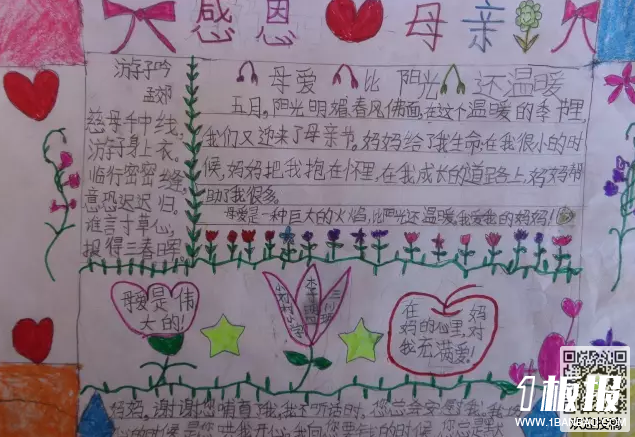 感恩母亲
游子吟
孟郊
慈母手中线，
游子身上衣。
临行密密缝，
意恐迟迟归。
谁言寸草心，
报得三春晖。
母爱比阳光还温暖
五月，阳光明媚，春风佛面，在这个温暖的季节里，
我们又迎来了母亲节。妈妈给了我生命，在我很小的时
候，妈妈把我抱在怀里，在我成长的道路上，妈妈帮
助了我很多。
母爱是一种巨大的火焰，比阳光还温暖。我爱我的妈妈！
母爱是伟
大的！
小学
三
班
在妈
妈的心里，对
我充满爱！
妈妗，谢谢您哺育了我，我不听话时，您总
板报
WWW.1BANBAO.COM